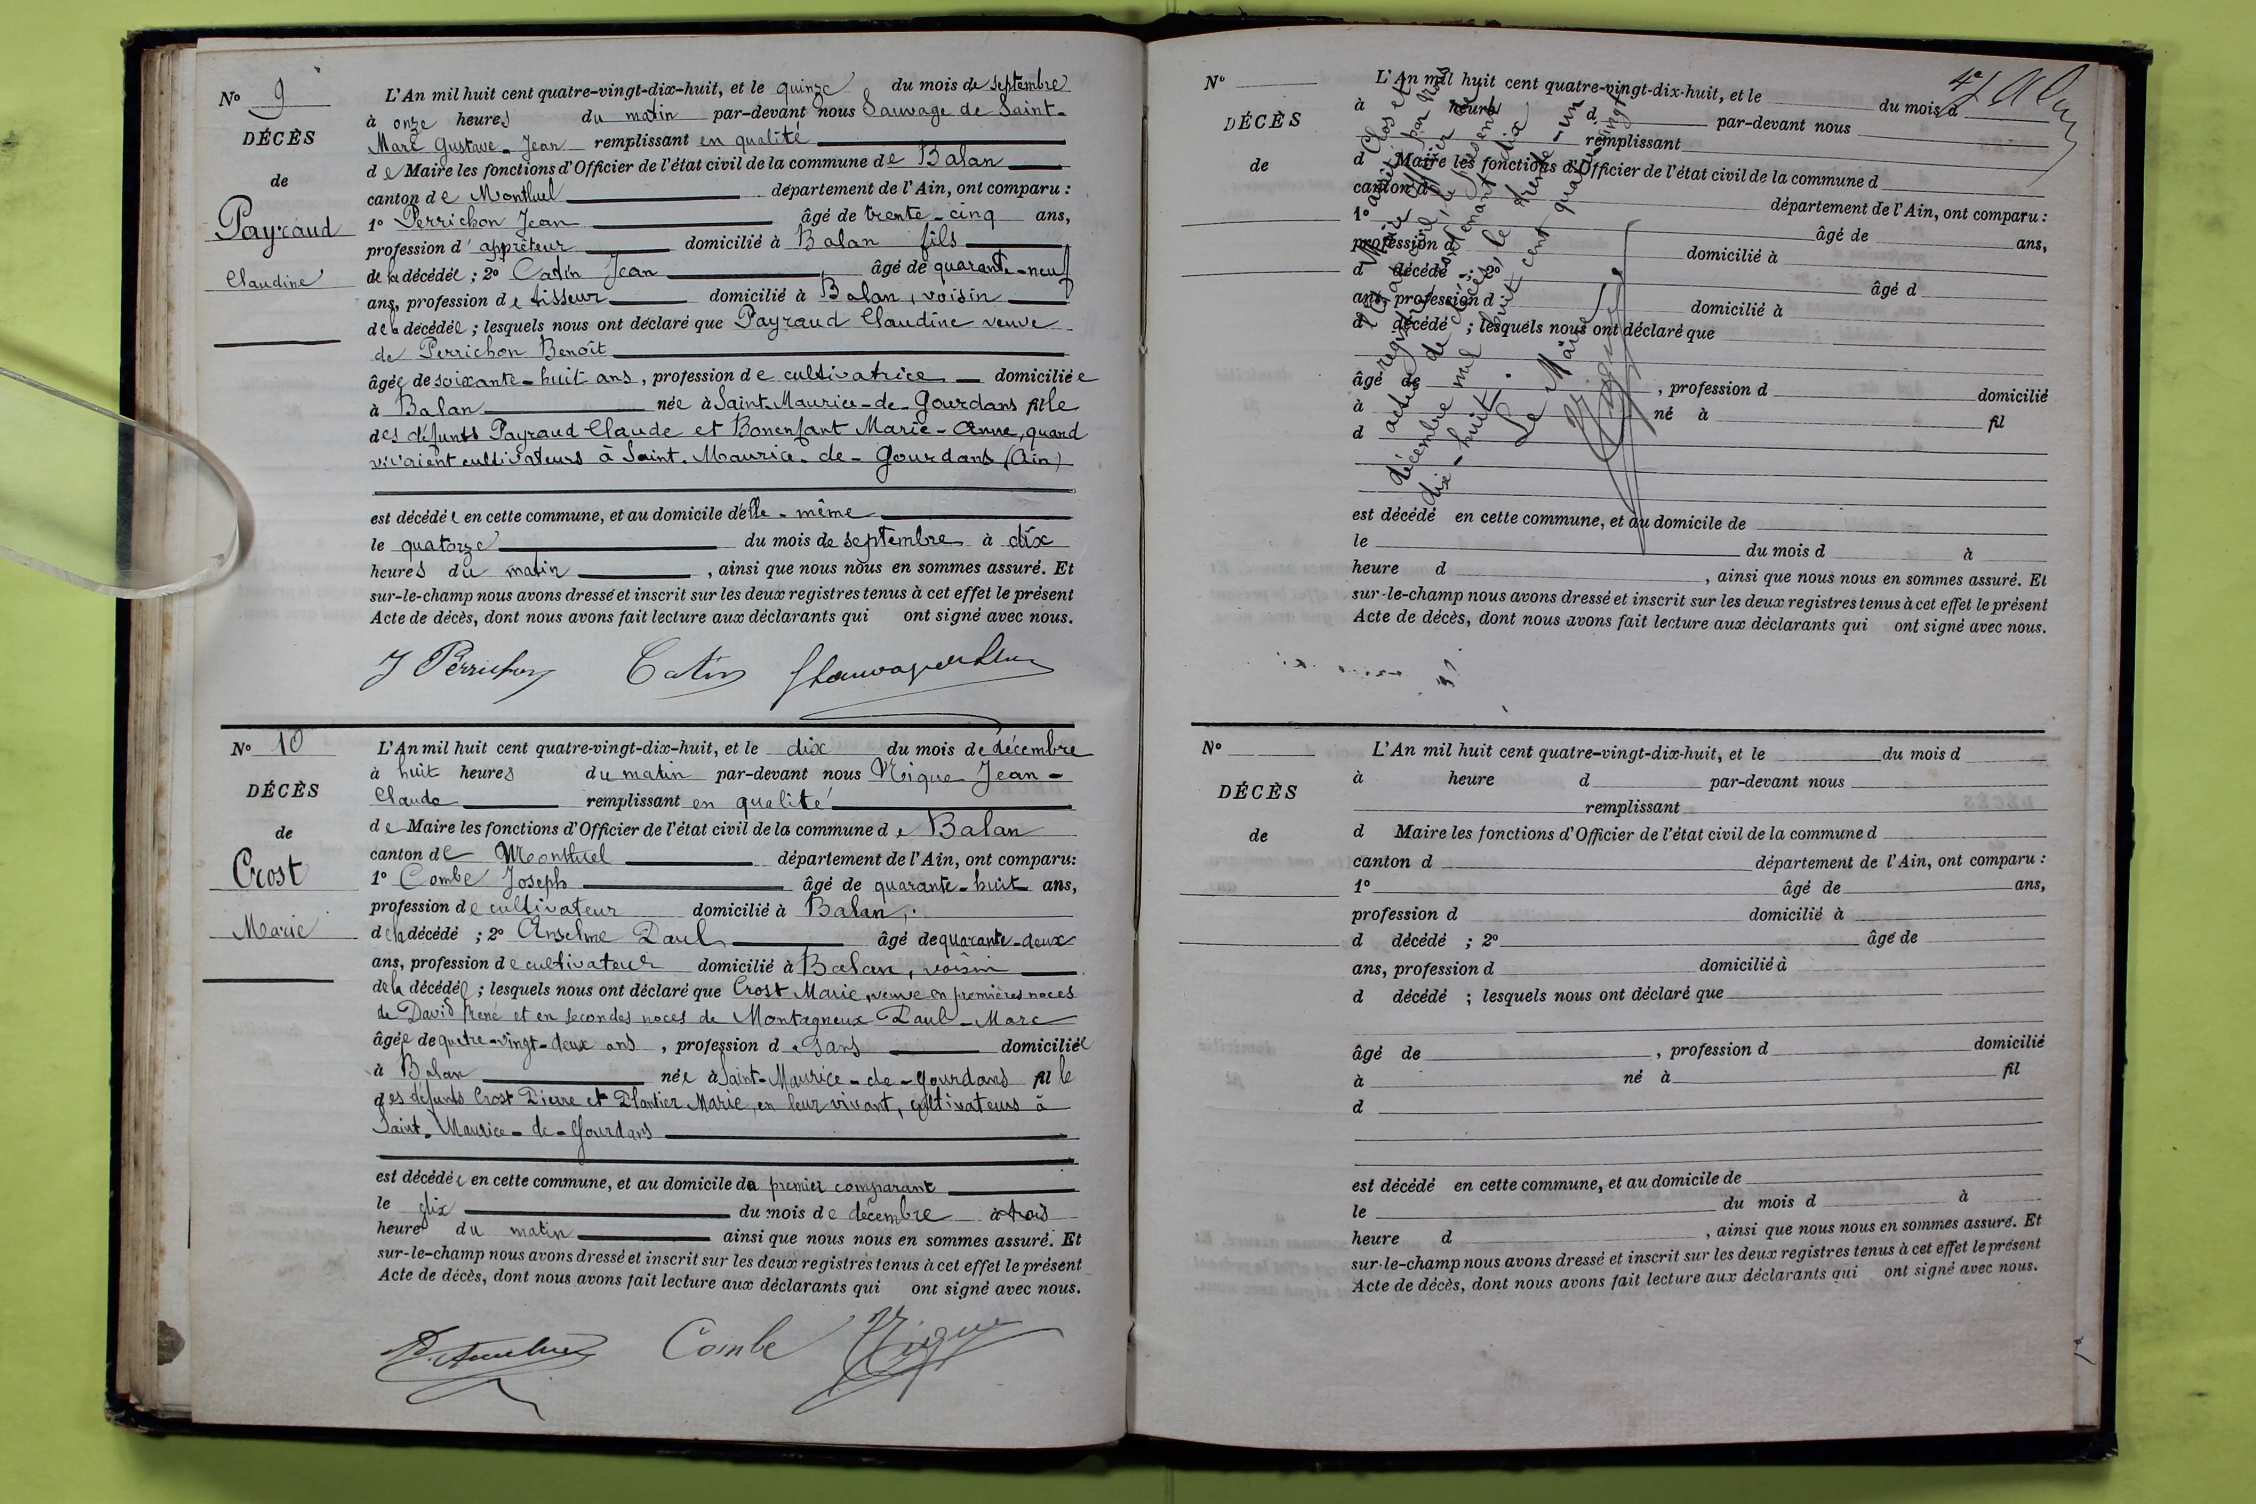 N° 9
DÉCÈS
de
Payraud
Claudine
L'An mil huit cent quatre-vingt-dix-huit, et le quinze du mois de septembre
à onze heures du matin par-devant nous Sauvage de Saint-
Marc Gustave-Jean remplissant en qualité
de Maire les fonctions d'Officier de l'état civil de la commune de Balan
canton de Montluel département de l'Ain, ont comparu :
1° Perrichon Jean âgé de trente-cinq ans,
profession d'apprêteur domicilié à Balan fils
de la décédée ; 2° Catin Jean âgé de quarante-neuf
ans, profession de tisseur domicilié à Balan, voisin
de la décédée ; lesquels nous ont déclaré que Payraud Claudine veuve
de Perrichon Benoît
âgée de soixante-huit ans, profession de cultivatrice domiciliée
à Balan née à Saint-Maurice-de-Gourdans fille
des défunts Payraud Claude et Bonenfant Marie-Anne, quand
vivaient cultivateurs à Saint-Maurice-de-Gourdans (Ain)
est décédée en cette commune, et au domicile d'elle-même
le quatorze du mois de septembre à dix
heures du matin, ainsi que nous nous en sommes assuré. Et
sur-le-champ nous avons dressé et inscrit sur les deux registres tenus à cet effet le présent
Acte de décès, dont nous avons fait lecture aux déclarants qui ont signé avec nous.
J Perrichon Catin
N° 10
DÉCÈS
de
Crost
Marie
L'An mil huit cent quatre-vingt-dix-huit, et le dix du mois de décembre
à huit heures du matin par-devant nous Nique Jean-
Claude remplissant en qualité
de Maire les fonctions d'Officier de l'état civil de la commune de Balan
canton de Montluel département de l'Ain, ont comparu :
1° Combe Joseph âgé de quarante-huit ans,
profession de cultivateur domicilié à Balan,
de la décédé ; 2° Anselme Paul âgé de quarante-deux
ans, profession de cultivateur domicilié à Balan, voisin
de la décédée ; lesquels nous ont déclaré que Crost Marie, veuve en premières noces
de David René et en secondes noces de Montagneux Paul-Marc
âgée de quatre-vingt-deux ans, profession de sans domiciliée
à Balan née à Saint-Maurice-de-Gourdans fille
des défunts Crost Pierre et Plantier Marie, en leur vivant, cultivateurs à
Saint-Maurice-de-Gourdans
est décédée en cette commune, et au domicile du premier comparant
le dix du mois de décembre à trois
heures du matin ainsi que nous nous en sommes assuré. Et
sur-le-champ nous avons dressé et inscrit sur les deux registres tenus à cet effet le présent
Acte de décès, dont nous avons fait lecture aux déclarants qui ont signé avec nous.
P. Anselme Combe Nique
N°
DÉCÈS
de
L'An mil huit cent quatre-vingt-dix-huit, et le du mois d
à heure d par-devant nous
remplissant
d Maire les fonctions d'Officier de l'état civil de la commune d
canton d département de l'Ain, ont comparu :
1° âgé de ans,
profession d domicilié à
d décédé ; 2° âgé d
ans, profession d domicilié à
d décédé ; lesquels nous ont déclaré que
âgé de , profession d domicilié
à né à fil
d
est décédé en cette commune, et au domicile de
le du mois d à
heure d , ainsi que nous nous en sommes assuré. Et
sur-le-champ nous avons dressé et inscrit sur les deux registres tenus à cet effet le présent
Acte de décès, dont nous avons fait lecture aux déclarants qui ont signé avec nous.
Clos et
arrêté par nous
registre
actes de décès, le trente-un
décembre mil huit cent quatre-vingt
dix-huit.
Le Maire
Nique
N°
DÉCÈS
de
L'An mil huit cent quatre-vingt-dix-huit, et le du mois d
à heure d par-devant nous
remplissant
d Maire les fonctions d'Officier de l'état civil de la commune d
canton d département de l'Ain, ont comparu :
1° âgé de ans,
profession d domicilié à
d décédé ; 2° âgé de
ans, profession d domicilié à
d décédé ; lesquels nous ont déclaré que
âgé de , profession d domicilié
à né à fil
d
est décédé en cette commune, et au domicile de
le du mois d à
heure d , ainsi que nous nous en sommes assuré. Et
sur-le-champ nous avons dressé et inscrit sur les deux registres tenus à cet effet le présent
Acte de décès, dont nous avons fait lecture aux déclarants qui ont signé avec nous.